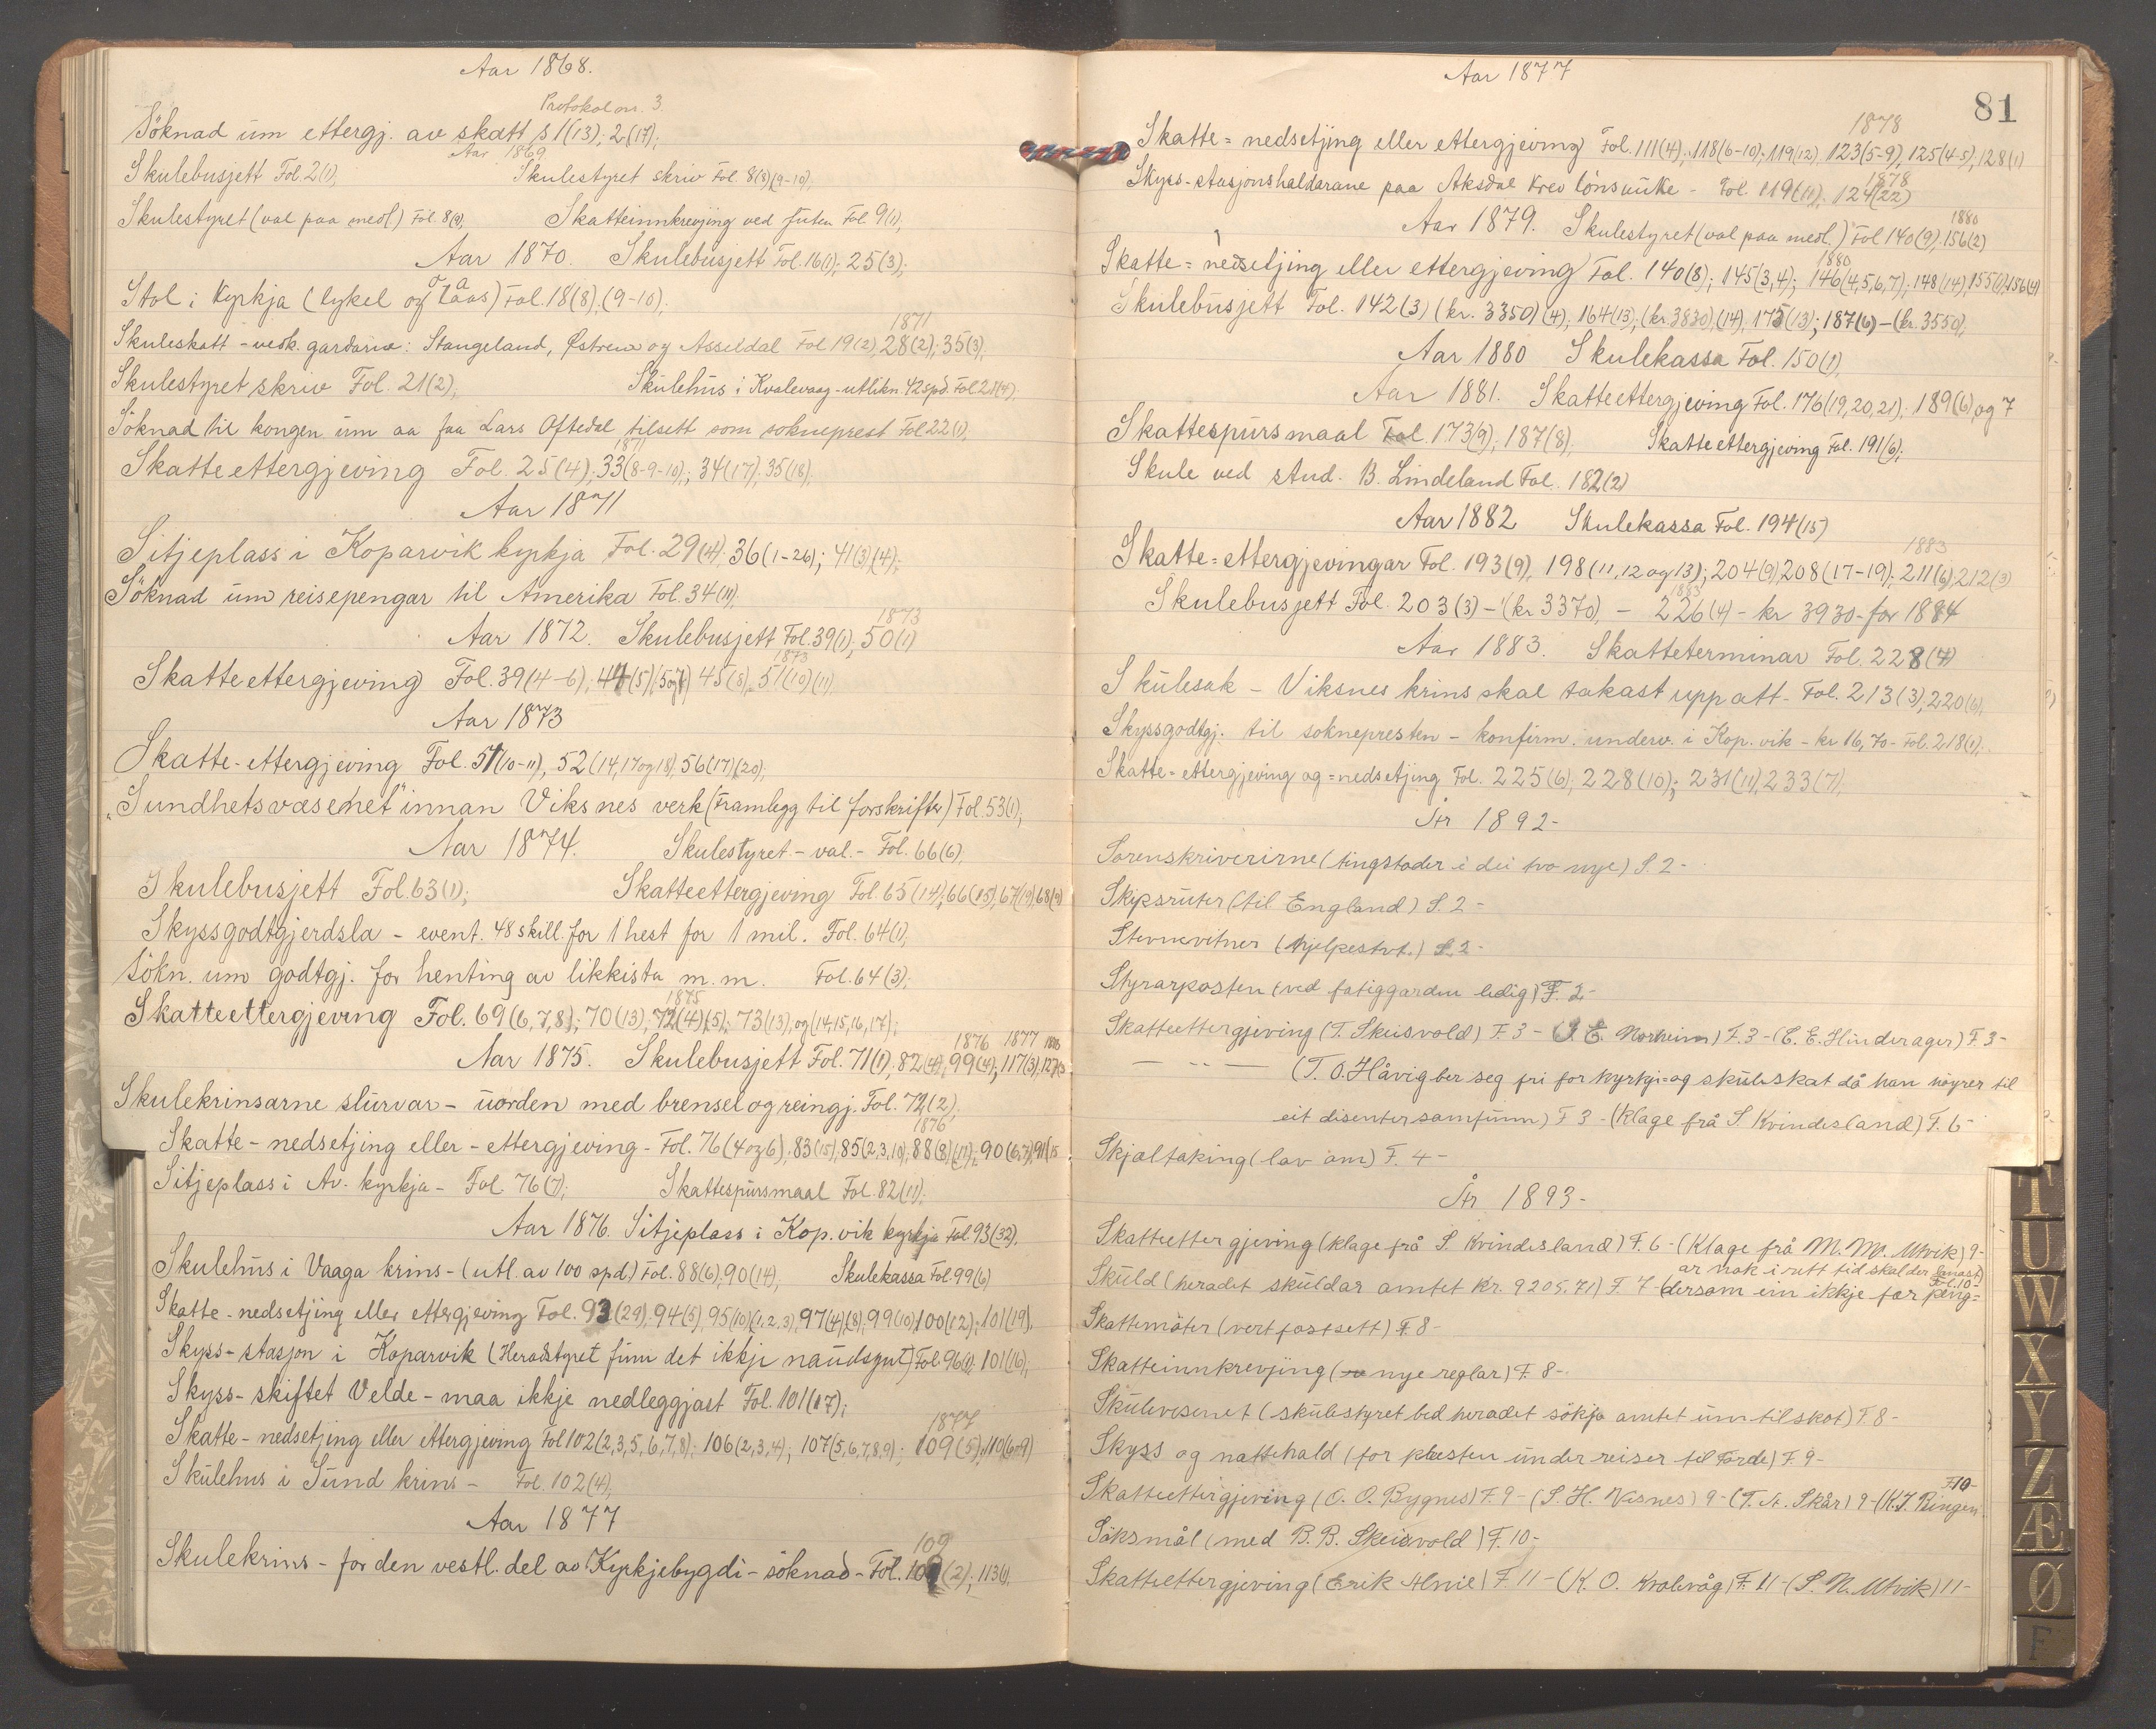 Aar 1868.
Protokol nr. 3.
Söknad um ettergj. av skatt s 1(13); 2(17);
Aar 1869
Skulebusjett Fol. 2(1), Skulestyret skriv Fol. 8(8)(9-10),
Skulestyret (val paa medl.) Fol. 8(9), Skatteinnkrevjing ved futen Fol. 9(1),
Aar 1870. Skulebusjett Fol. 16(1); 25(3);
Stol i kyrkja (lykel og laas) Fol. 18(8), (9-10);
1871
Skuleskatt - vedk. gardarne: Stangeland, Østreim og Asseldal Fol 19(2), 28(2); 35(3),
Skulestyret skriv Fol. 21(2); Skulehus i Kvalevaag - utlikn. 42 spd. Fol 21(4).
Söknad til kongen um aa faa Lars Oftedal tilsett som sokneprest Fol 22(1),
1871
Skatteettergjeving Fol. 25(4); 33(8-9-10); 34(17), 35(18),
Aar 1871
Sitjeplass i Koparvik kyrkja Fol. 29(4), 36(1-26); 41(3)(4);
Söknad um reisepengar til Amerika Fol. 34(11),
1873
Aar 1872. Skulebusjett Fol. 39(1), 50(1)
1873
Skatteettergjeving Fol. 39(4-6), 44(5)(5og7) 45(8), 51(10)(11)
Aar 1873
Skatte-ettergjeving Fol. 51(10-11), 52(14,17og18), 56(17)(20);
"Sundhetsvæsenet" innan Viksnes verk (Framlegg til forskrifter) Fol. 53(1);
Aar 1874. Skulestyret - val. - Fol. 66(6),
Skulebusjett Fol. 63(1); Skatteettergjeving Fol. 65(14), 66(15), 67(19), 68(9)
Skyssgodtgjerdsla - event. 48 skill. for 1 hest for 1 mil. Fol. 64(1),
Søkn. um godtgj. for henting av likkista m.m. Fol. 64(3);
1875
Skatteettergjeving Fol. 69(6,7,8); 70(13), 72(4)(5); 73(13), og (14,15,16,17);
1876 1877 1878
Aar 1875. Skulebusjett Fol. 71(1), 82(4), 99(4); 117(3), 127(3
Skulekrinsarne slurvar - uorden med brensel og reingj. Fol. 72(2),
1876
Skatte-nedsetjing eller - ettergjeving - Fol. 76(4og6), 83(15), 85(2,3,10), 88(8)(11), 90(6,7), 91(15
Sitjeplass i Av. kyrkja - Fol. 76(7); Skattespursmaal Fol. 82(11);
Aar 1876. Sitjeplass i Kop.vik kyrkja Fol. 93(32),
Skulehus i Vaaga krins - (utl. av 100 spd.) Fol. 88(6), 90(14), Skulekassa Fol. 99(6)
Skatte-nedsetjing eller ettergjeving Fol. 93(29), 94(5), 95(10)(1,2,3), 97(4)(8), 99(10), 100(12); 101(19),
Skyss-stasjon i Koparvik (Heradstyret finn det ikkje naudsynt) Fol. 96(1); 101(16);
Skyss-skiftet Velde - maa ikkje nedleggjast Fol. 101(17);
1877
Skatte-nedsetjing eller ettergjeving Fol 102(2,3,5,6,7,8); 106(2,3,4); 107(5,6,7,8,9); 109(5), 110(6og9)
Skulehus i Sund krins - Fol. 102(4),
Aar 1877
109
Skulekrins - for den vestl. del av Kyrkjebygdi - söknad - Fol. 109(2); 113(1),
Aar 1877
81
1878
Skatte=nedsetjing eller ettergjeving Fol. 111(4); 118(6-10); 119(12), 123(5-9), 125(4-5), 128(1)
1878
Skyss-stasjonshaldarane paa Aksdal krev lönsauke - Fol. 119(11), 124(22)
1880
Aar 1879. Skulestyret (val paa medl.) Fol 140(9), 156(2)
1880
Skatte=nedsetjing eller ettergjeving Fol. 140(8); 145(3,4); 146(4,5,6,7); 148(14), 155(1), 156(4)
Skulebusjett Fol. 142(3) (kr. 3350) (4); 164(13); (kr. 3830), (14), 175(13); 187(6) - (kr. 3550),
Aar 1880 Skulekassa Fol. 150(1),
Aar 1881. Skatteettergjeving Fol. 176(19,20,21); 189(6) og 7
Skattespursmaal Fol. 173(9); 187(8), Skatteettergjeving Fol. 191(6);
Skule ved stud. B. Lindeland Fol. 182(2)
Aar 1882 Skulekassa Fol. 194(15)
1883
Skatte=ettergjevingar Fol. 193(9), 198(11,12 og 13); 204(9), 208(17-19); 211(6), 212(3)
1883
Skulebusjett Fol. 203(3) - (kr 3370), - 226(4) - kr 3930 - for 1884
Aar 1883. Skatteterminar Fol. 228(4)
Skulesak - Viksnes krins skal takast upp att - Fol. 213(3), 220(6),
Skyssgodtgj. til soknepresten - konfirm. underv. i Kop.vik - kr 16,70 - Fol. 218(1),
Skatte=ettergjeving og=nedsetjing Fol. 225(6), 228(10); 231(11), 233(7),
År 1892-
Sorenskriverirne (tingstader i dei tvo nye) S. 2-
Skipsruter (til England) S. 2-
Stevnevitner (hjelpestvt.) S. 2-
Styrarposten (ved fatiggarden ledig) F. 2-
Skatteettergjeving (T. Skeisvold) F. 3 - (J. E. Norheim) F. 3 - (E. E. Hinderager) F. 3-
— " — (T. O. Håvig ber seg fri for kyrkje= og skuleskat då han höyrer til
eit disentersamfunn) F 3 - (Klage frå S. Kvindesland) F. 6-
Skjøltaking (lav om) F. 4-
År 1893-
Skatteettergjeving (klage frå S. Kvindesland) F. 6 - (Klage frå M. M. Utvik) 9-
ar nok i rett tid skal der lånast)
Fol. 10-
Skuld (heradet skuldar amtet Kr. 9205,71) F. 7 - (dersom ein ikkje får peng=
Skattemöter (vert fastsett) F. 8-
Skatteinnkrevjing (nye reglar) F. 8-
Skulevesenet (skulestyret bed heradet sökja amtet um tilskot) F. 8-
Skyss og nattehald (for presten under reiser til Förde) F. 9-
F10-
Skatteettergjeving (O. O. Bygnes) F. 9 - (S. H. Visnes) 9 - (T. A. Skår) 9 - (K. J. Ringen
Söksmål (med B. B. Skeisvold) F. 10-
Skatteettergjeving (Erik Alnie) F. 11 - (K. O. Kvalevåg) F. 11 - (S. N. Utvik) 11-
T
U
W
X
Y
Z
Æ
Ø
F